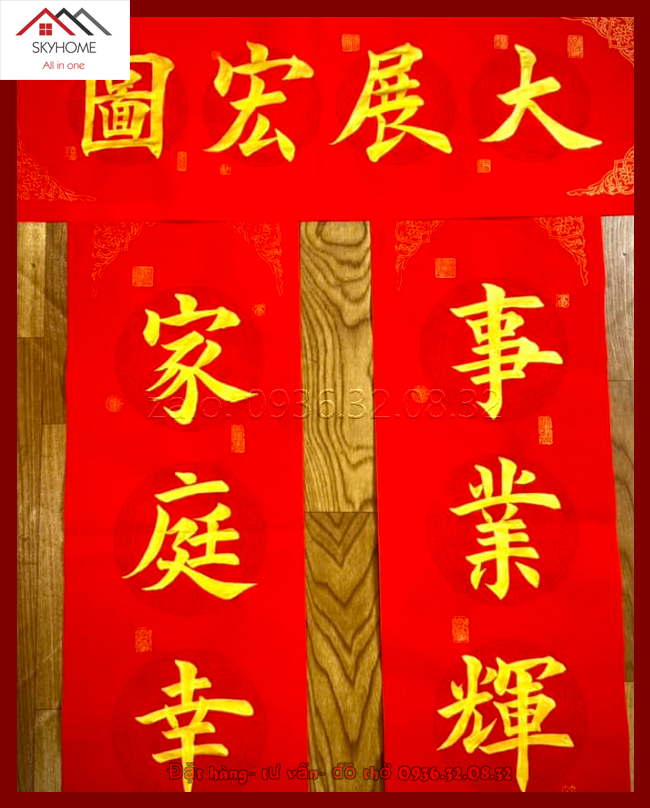 SKYHOME
All in one
大展宏圖
事業輝
家庭幸
zalo: 0936.32.08.32
Đặt hàng- tư vấn- đồ thờ 0936.32.08.32